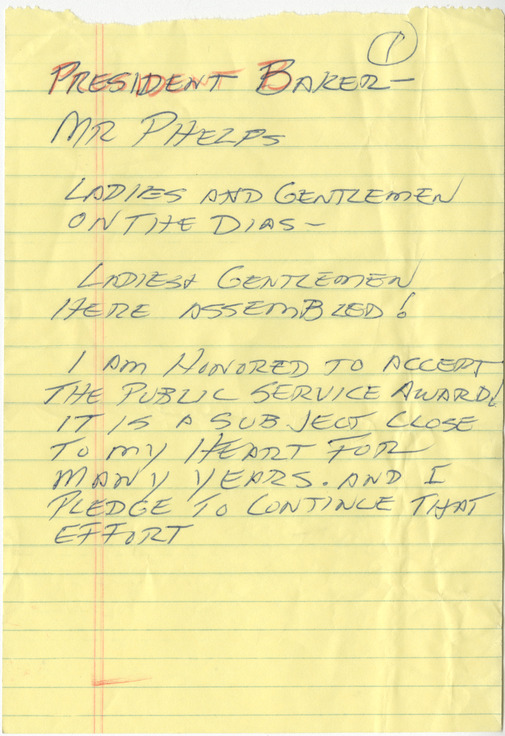 1
PRESIDENT BAKER—
MR PHELPS
LADIES AND GENTLEMEN
ON THE DIAS—
LADIES & GENTLEMEN
HERE ASSEMBLED!
I AM HONORED TO ACCEPT
THE PUBLIC SERVICE AWARD!
IT IS A SUBJECT CLOSE
TO MY HEART FOR
MANY YEARS. AND I
PLEDGE TO CONTINUE THAT
EFFORT